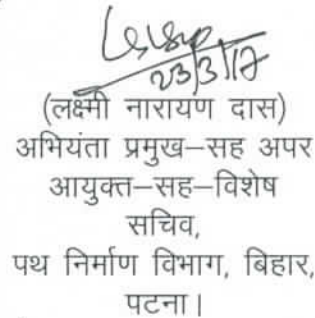 23/3/17
(लक्ष्मी नारायण दास)
अभियंता प्रमुख–सह अपर
आयुक्त–सह–विशेष
सचिव,
पथ निर्माण विभाग, बिहार,
पटना।